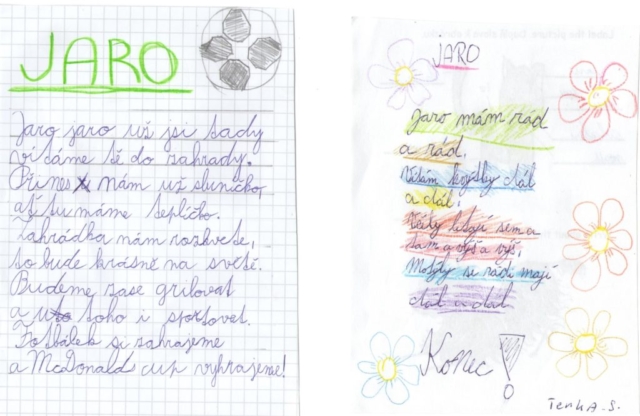 JARO
Jaro jaro už jsi tady
vítáme tě do zahrady.
Přines nám už sluníčko,
ať tu máme teplíčko.
Zahrádka nám rozkvete,
to bude krásně na světě.
Budeme zase grilovat
a u toho i sportovat.
Fotbálek si zahrajeme
a McDonald cup vyhrajeme!
JARO
Jaro mám rád
a rád,
Vítám kyjtky dál
a dál,
létají sem a
tam a výš a výš,
Motýly si rádi mají
dál a dál
Konec!
Tenka.S.